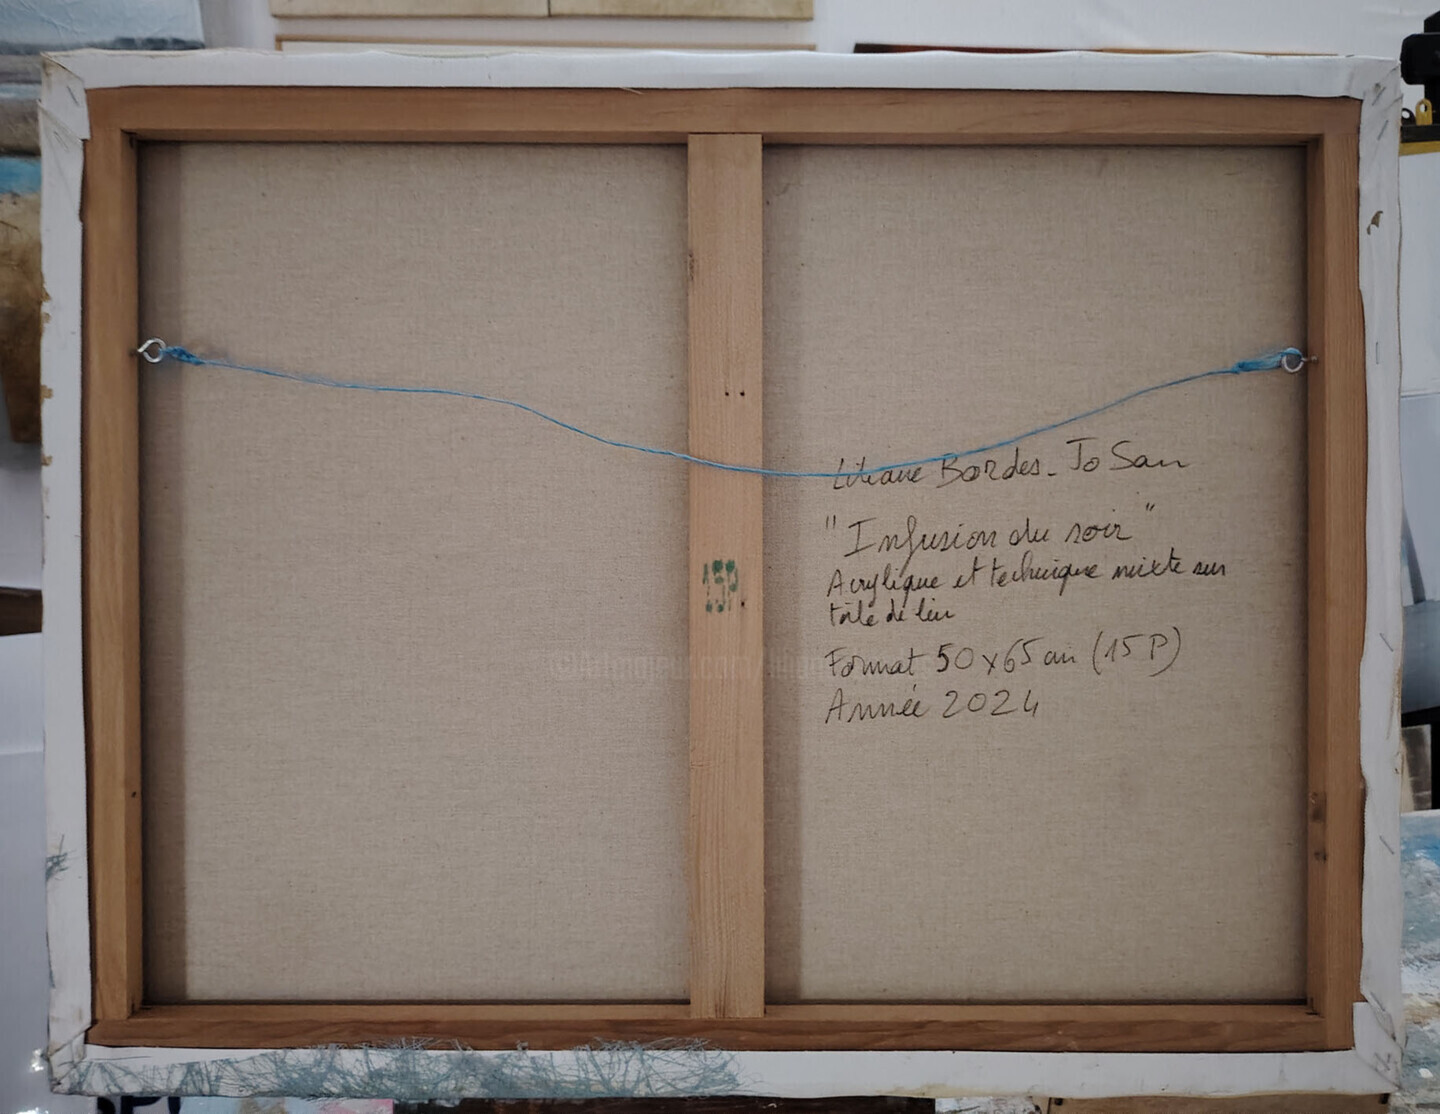 Liliane Bordes-Jo San
"Infusion du soir"
Acrylique et technique mixte sur
toile de lin
Format 50x65 cm (15 P)
Année 2024
15P